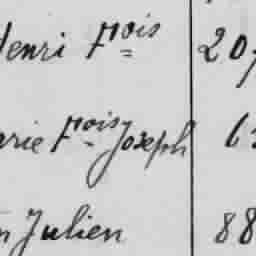 Henri Fçois 207
arie Fçois Joseph 6
n Julien 88